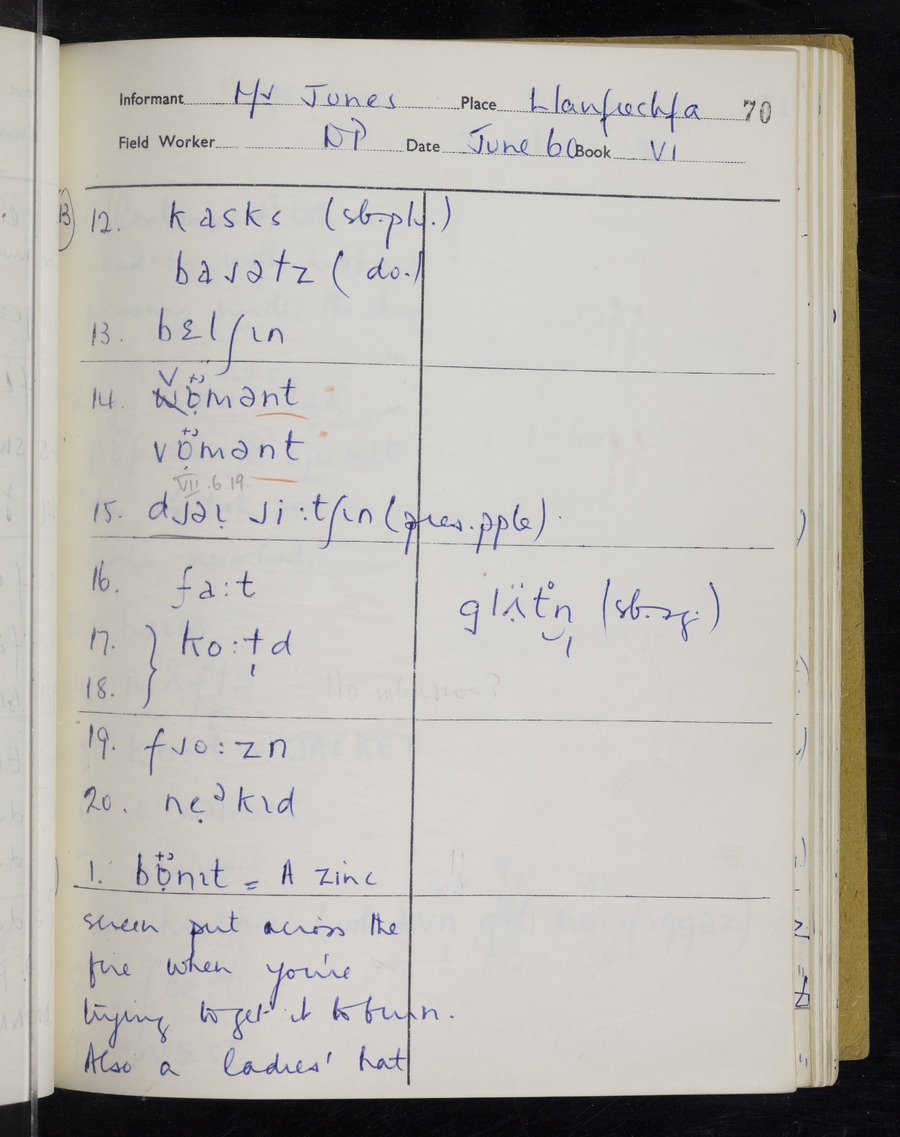 Informant Mr Jones Place Llanfrechfa 70
Field Worker DP Date June 60 Book VI
13 12. kasks (sb.plu.)
baɹətz (do.)
13. bɛlʃɪn
14. vọ̈mənt
vọ̈mənt
VII.6.19.
15. dɹəɪ ɹi:tʃɪn (pres. pple)
16. fa:t
glätn̩ (sb.sg.)
17. ko:td
18.
No intrusive?
19. fɹo:zn
20. nẹᵊkɪd
1. bọ̈nɪt = A zinc
screen put across the
fire when you're
trying to get it to burn.
Also a ladies' hat